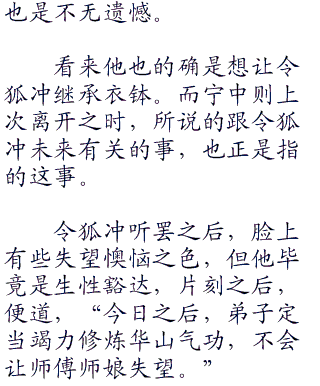 也是不无遗憾。
看来他也的确是想让令
狐冲继承衣钵。而宁中则上
次离开之时，所说的跟令狐
冲未来有关的事，也正是指
的这事。
令狐冲听罢之后，脸上
有些失望懊恼之色，但他毕
竟是生性豁达，片刻之后，
便道，“今日之后，弟子定
当竭力修炼华山气功，不会
让师傅师娘失望。”